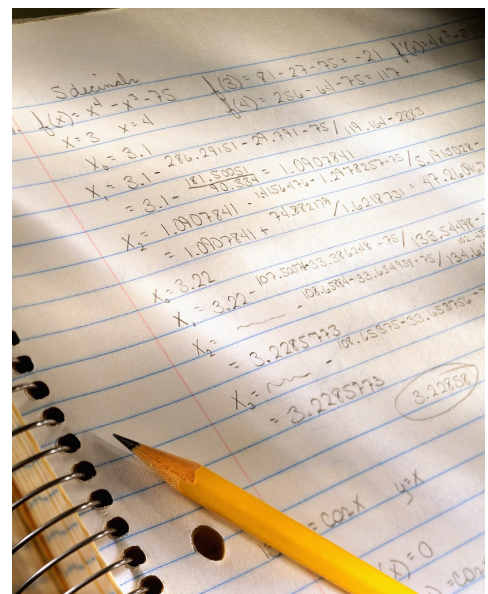 5 decimals
1. f(x) = x⁴ - x³ - 75 f(3) = 81 - 27 - 75 = -21 f'(x) = 4x³ - 3
x = 3 x = 4 f(4) = 256 - 64 - 75 = 117
X₀ = 3.1
X₁ = 3.1 - 286.29151 - 29.791 - 75 / 119.164 - 2883
= 3.1 - 181.50051 / 90.334 = 1.0907841
X₂ = 1.0907841 - 1.4156476 - 1.2978257 - 75 / 5.1913028 -
= 1.0907841 + 74.882179 / 1.6218731 = 47.26067
X₀ = 3.22
X₁ = 3.22 - 107.5074 - 33.386248 - 75 / 133.54498 -
X₂ = - 108.6584 - 33.654938 - 75 / 134.61
= 3.2285773
X₃ = - 108.65375 - 33.653756 - 7
= 3.2285773 3.22858
= cos x y = x
(x) = 0
= cos